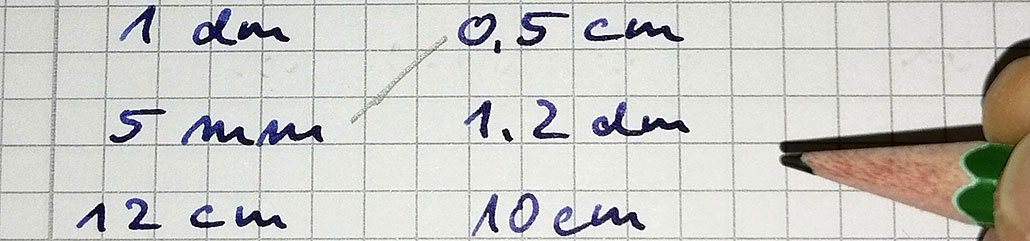 1 dm 0,5 cm
5 mm 1.2 dm
12 cm 10 cm